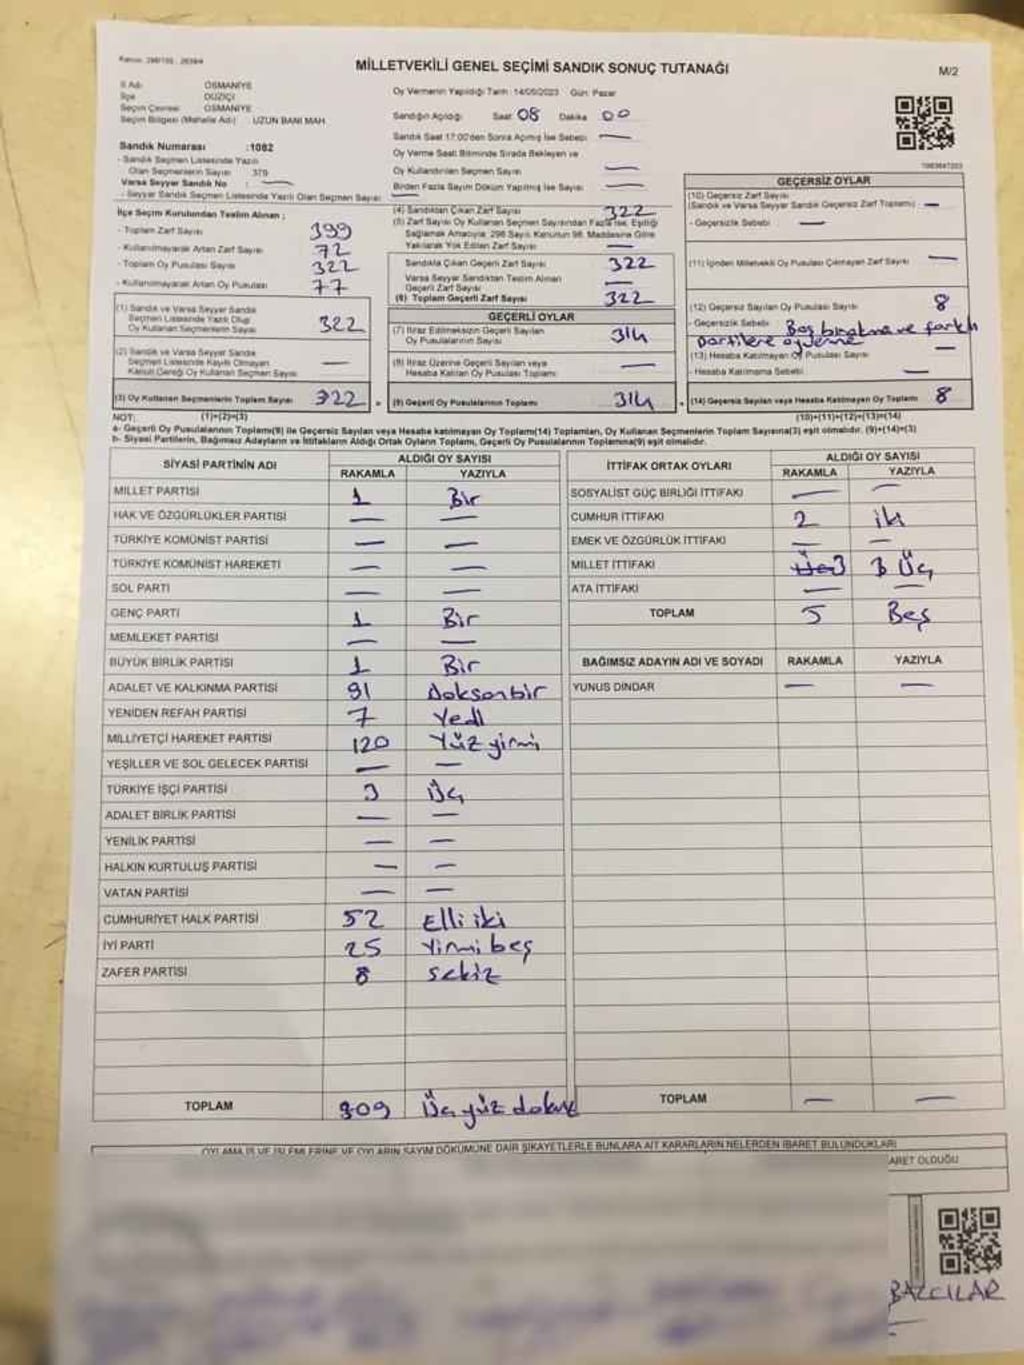 MİLLETVEKİLİ GENEL SEÇİMİ SANDIK SONUÇ TUTANAĞI
M/2
İl Adı: OSMANİYE
İlçe DÜZİÇİ
Seçim Çevresi OSMANİYE
Seçim Bölgesi (Mahalle Adı) UZUN BANI MAH.
Sandık Numarası :1082
- Sandık Seçmen Listesinde Yazılı
Olan Seçmenlerin Sayısı 379
Varsa Seyyar Sandık No : —
- Seyyar Sandık Seçmen Listesinde Yazılı Olan Seçmen Sayısı
İlçe Seçim Kurulundan Teslim Alınan ;
- Toplam Zarf Sayısı 399
- Kullanılmayarak Artan Zarf Sayısı 72
- Toplam Oy Pusulası Sayısı 322
- Kullanılmayarak Artan Oy Pusulası 77
(1) Sandık ve Varsa Seyyar Sandık
Seçmen Listesinde Yazılı Olup
Oy Kullanan Seçmenlerin Sayısı 322
(2) Sandık ve Varsa Seyyar Sandık
Seçmen Listesinde Kayıtlı Olmayan
Kanun Gereği Oy Kullanan Seçmen Sayısı —
(3) Oy Kullanan Seçmenlerin Toplam Sayısı 322 =
(1)+(2)=(3)
Oy Vermenin Yapıldığı Tarih : 14/05/2023 Gün: Pazar
Sandığın Açıldığı Saat 08 Dakika 00
Sandık Saat 17:00'den Sonra Açılmış İse Sebebi —
Oy Verme Saati Bitiminde Sırada Bekleyen ve
Oy Kullandırılan Seçmen Sayısı —
Birden Fazla Sayım Döküm Yapılmış İse Sayısı —
(4) Sandıktan Çıkan Zarf Sayısı 322
(5) Zarf Sayısı Oy Kullanan Seçmen Sayısından Fazla İse, Eşitliği
Sağlamak Amacıyla; 298 Sayılı Kanunun 98. Maddesine Göre
Yakılarak Yok Edilen Zarf Sayısı —
Sandıkta Çıkan Geçerli Zarf Sayısı 322
Varsa Seyyar Sandıktan Teslim Alınan
Geçerli Zarf Sayısı —
(6) Toplam Geçerli Zarf Sayısı 322
GEÇERLİ OYLAR
(7) İtiraz Edilmeksizin Geçerli Sayılan
Oy Pusulalarının Sayısı 314
(8) İtiraz Üzerine Geçerli Sayılan veya
Hesaba Katılan Oy Pusulası Toplamı —
(9) Geçerli Oy Pusulalarının Toplamı 314 +
GEÇERSİZ OYLAR
(10) Geçersiz Zarf Sayısı
(Sandık ve Varsa Seyyar Sandık Geçersiz Zarf Toplamı) —
- Geçersizlik Sebebi —
(11) İçinden Milletvekili Oy Pusulası Çıkmayan Zarf Sayısı —
(12) Geçersiz Sayılan Oy Pusulası Sayısı 8
- Geçersizlik Sebebi Boş bırakma ve farklı
partilere oy verme
(13) Hesaba Katılmayan Oy Pusulası Sayısı —
- Hesaba Katılmama Sebebi —
(14) Geçersiz Sayılan veya Hesaba Katılmayan Oy Toplamı 8
(10)+(11)+(12)+(13)=(14)
NOT:
a- Geçerli Oy Pusulalarının Toplamı(9) ile Geçersiz Sayılan veya Hesaba Katılmayan Oy Toplam(14) Toplamları, Oy Kullanan Seçmenlerin Toplam Sayısına(3) eşit olmalıdır. (9)+(14)=(3)
b- Siyasi Partilerin, Bağımsız Adayların ve İttifakların Aldığı Ortak Oyların Toplamı, Geçerli Oy Pusulalarının Toplamına(9) eşit olmalıdır.
SİYASİ PARTİNİN ADI ALDIĞI OY SAYISI
RAKAMLA YAZIYLA
MİLLET PARTİSİ 1 Bir
HAK VE ÖZGÜRLÜKLER PARTİSİ — —
TÜRKİYE KOMÜNİST PARTİSİ — —
TÜRKİYE KOMÜNİST HAREKETİ — —
SOL PARTİ — —
GENÇ PARTİ 1 Bir
MEMLEKET PARTİSİ — —
BÜYÜK BİRLİK PARTİSİ 1 Bir
ADALET VE KALKINMA PARTİSİ 91 Doksanbir
YENİDEN REFAH PARTİSİ 7 Yedi
MİLLİYETÇİ HAREKET PARTİSİ 120 Yüz yirmi
YEŞİLLER VE SOL GELECEK PARTİSİ — —
TÜRKİYE İŞÇİ PARTİSİ 3 Üç
ADALET BİRLİK PARTİSİ — —
YENİLİK PARTİSİ — —
HALKIN KURTULUŞ PARTİSİ — —
VATAN PARTİSİ — —
CUMHURİYET HALK PARTİSİ 52 Elli iki
İYİ PARTİ 25 Yirmi beş
ZAFER PARTİSİ 8 sekiz
TOPLAM 309 Üç yüz dokuz
İTTİFAK ORTAK OYLARI ALDIĞI OY SAYISI
RAKAMLA YAZIYLA
SOSYALİST GÜÇ BİRLİĞİ İTTİFAKI — —
CUMHUR İTTİFAKI 2 iki
EMEK VE ÖZGÜRLÜK İTTİFAKI — —
MİLLET İTTİFAKI 3 3 Üç
ATA İTTİFAKI — —
TOPLAM 5 Beş
BAĞIMSIZ ADAYIN ADI VE SOYADI RAKAMLA YAZIYLA
YUNUS DİNDAR — —
TOPLAM — —
OYLAMA İŞ VE İŞLEMLERİNE VE OYLARIN SAYIM DÖKÜMÜNE DAİR ŞİKAYETLERLE BUNLARA AİT KARARLARIN NELERDEN İBARET BULUNDUKLARI
ARET OLDUĞU
BAZCILAR